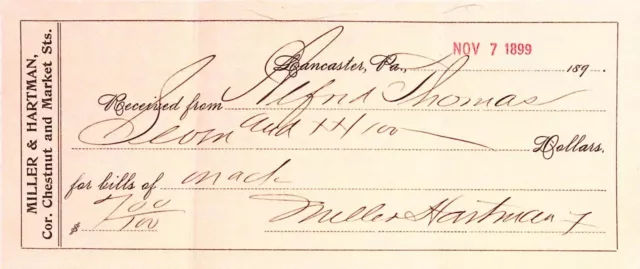 MILLER & HARTMAN,
Cor. Chestnut and Market Sts.
Lancaster, Pa., NOV 7 1899 189
Received from Alfrid Thomas
Seven and XX/100 Dollars,
for bills of made
$ 700/100 Miller Hartman